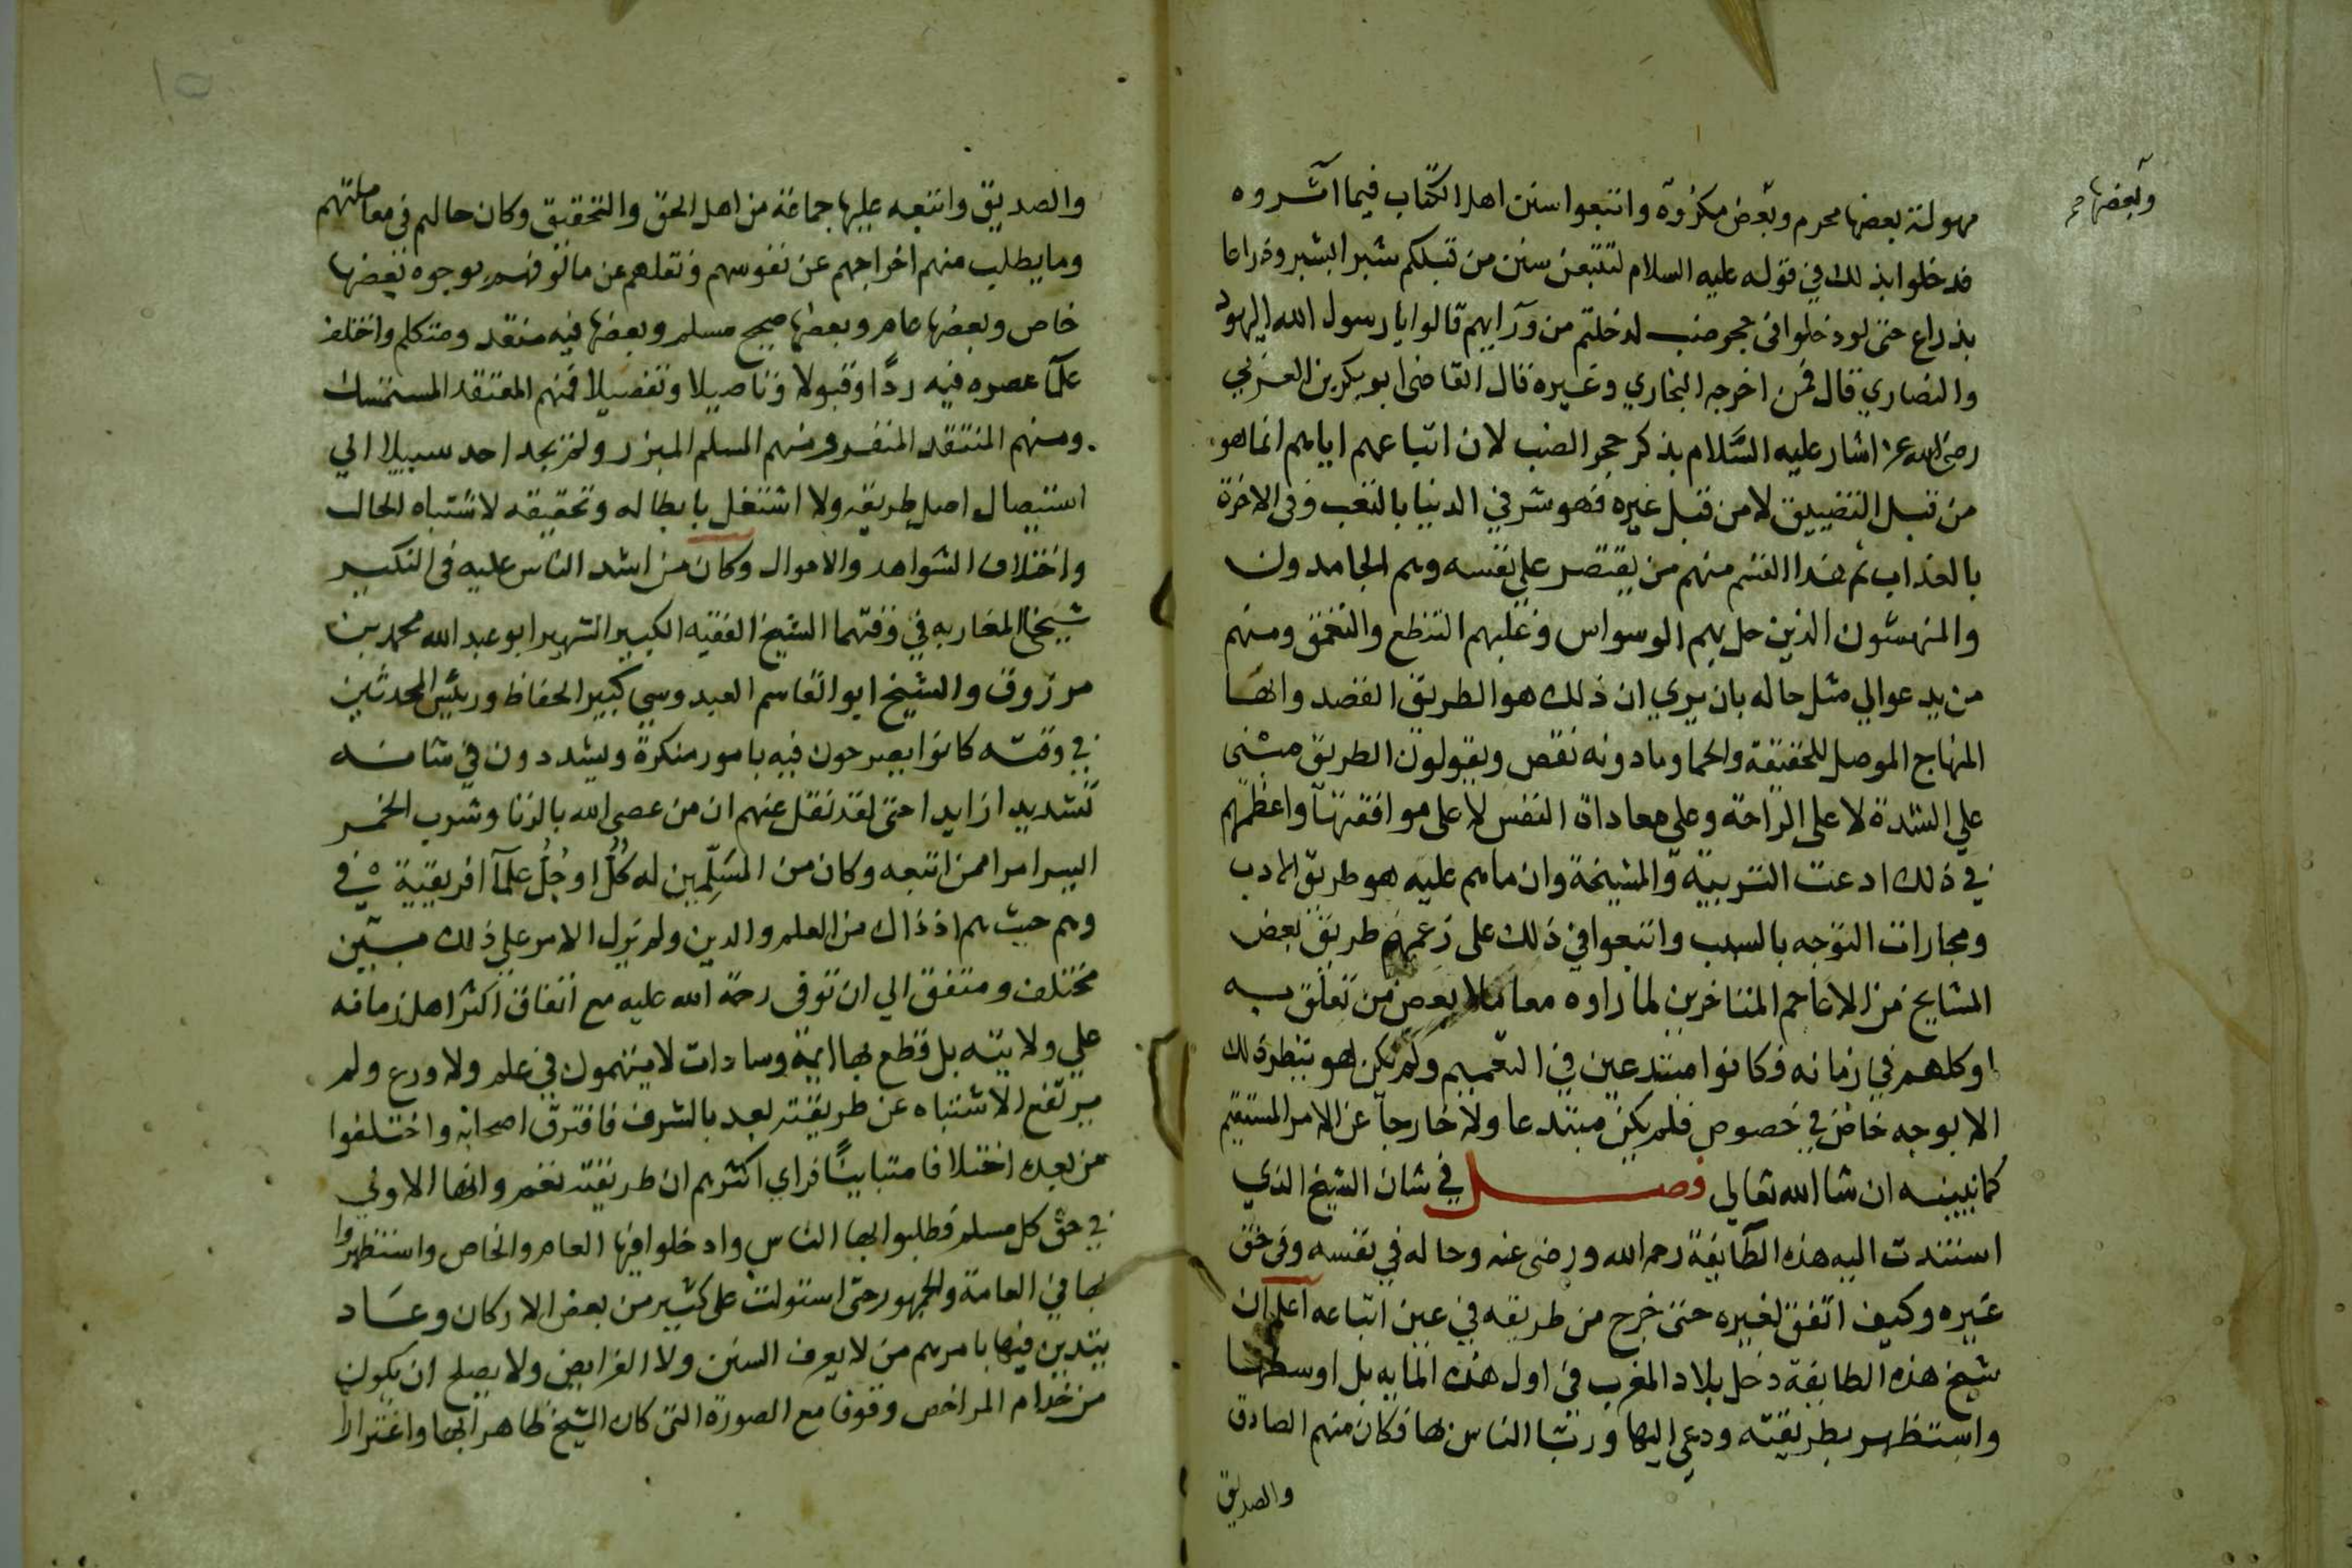 وبعضها صح
مهولة بعضها محرم وبعض مكروه واتبعوا سنن اهل الكتاب فيما اثروه
فدخلوا بذلك في قوله عليه السلام لتتبعن سنن من قبلكم شبرا بشبر وذراعا
بذراع حتى لو دخلوا في جحر ضب لدخلتم من ورآيهم قالوا يا رسول الله اليهود
والنصاري قال فمن اخرجه البخاري وغيره قال القاضي ابو بكر بن العربي
رضي الله عنه اشار عليه السلام بذكر جحر الضب لان اتباعهم اياهم انما هو
من قبل التضييق لا من قبل غيره فهو شر في الدنيا بالتعب وفي الاخرة
بالعذاب ثم هذا القسم منهم من يقتصر علي نفسه وهم الجامدون
والمنهسون الذين حل بهم الوسواس وغلبهم التنطع والتعمق ومنهم
من يدعوا الي مثل حاله بان يري ان ذلك هو الطريق القصد وانها
المنهاج الموصل للحقيقة والحما وما دونه نقص ويقولون الطريق مبني
علي الشدة لا على الراحة وعلى معاداة النفس لا على موافقتها واعظمهم
في ذلك ادعت التربية والمشيخة وان ما هم عليه هو طريق الادب
ومجارات التوجه بالسبب واتبعوا في ذلك على زعمهم طريق بعض
المشايخ من الاعاجم المتاخرين لما راوه معاملا بعض من تعلق به
او كلهم في زمانه فكانوا مبتدعين في التعميم ولم يكن هو بتطرد لك
الا بوجه خاص في خصوص فلم يكن مبتدعا ولا خارجا عن الامر المستقيم
كما نبينه ان شا الله تعالي فصل في شان الشيخ الذي
استندت اليه هذه الطآيفة رحمه الله ورضى عنه وحاله في نفسه وفي حق
غيره وكيف اتفق لغيره حتى خرج من طريقه في عين اتباعه اعلم ان
شيخ هذه الطايفة دخل بلاد المغرب في اول هذه المايه بل اوسطها
واستظهر بطريقته ودعي اليها ورتبا الناس لها فكان منهم الصادق
والصديق
والصديق واتبعه عليها جماعة من اهل الحق والتحقيق وكان حالهم في معاملتهم
وما يطلب منهم اخراجهم عن نفوسهم ونقلهم عن مالوفهم بوجوه بعضها
خاص وبعضها عام وبعضها صحيح مسلم وبعضها فيه منتقد ومتكلم واختلف
علمآ عصره فيه ردًا وقبولا وتاصيلا وتفصيلا فمنهم المعتقد المستمسك
ومنهم المنتقد المنفرد ومنهم المسلم المبرز ولم يجد احد سبيلا الي
استيصال اصل طريقه ولا اشتغل بابطاله وتحقيقه لاشتباه الحال
واختلاف الشواهد والاموال وكان من اشد الناس عليه في النكير
شيخا المغاربه في وقتهما الشيخ الفقيه الكبير الشهير ابو عبد الله محمد بن
مرزوق والشيخ ابو القاسم العبدوسي كبير الحفاظ وريئس المحدثين
في وقته كانوا يصرحون فيه بامور منكرة ويشددون في شانه
تشديدا زايدا حتى لقد نقل عنهم ان من عصي الله بالزنا وشرب الخمر
اليسر امرا ممن اتبعه وكان من المسَلِّمين له كُلُّ او جُلُّ علمآ افريقية في
وهم حيث هم اذ ذاك من العلم والدين ولم يزل الامر علي ذلك بين
مختلف ومتفق الي ان توفى رحمة الله عليه مع اتفاق اكثر اهل زمانه
علي ولايته بل قطع بها ايمة وسادات لا يتهمون في علم ولا ورع ولم
يرتفع الاشتباه عن طريقته بعد بالشرف فافترق اصحابه واختلفوا
من بعده اختلافا متباينًا فراي اكثرهم ان طريقته تعم وانها الاولي
في حق كل مسلم فطلبوا بها الناس وادخلوا فيها العام والخاص واستظهروا
بها في العامة والجمهور حتى استولت على كثير من بعض الاركان وعاد
يتدين فيها بامرهم من لا يعرف السنن ولا الفرايض ولا يصلح ان يكون
من خدام المراخص وقوفا مع الصورة التى كان الشيخ ظاهرا بها واغترارا